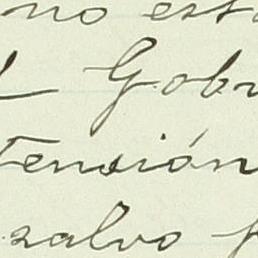 no est
l Gobr
tensión
salvo p